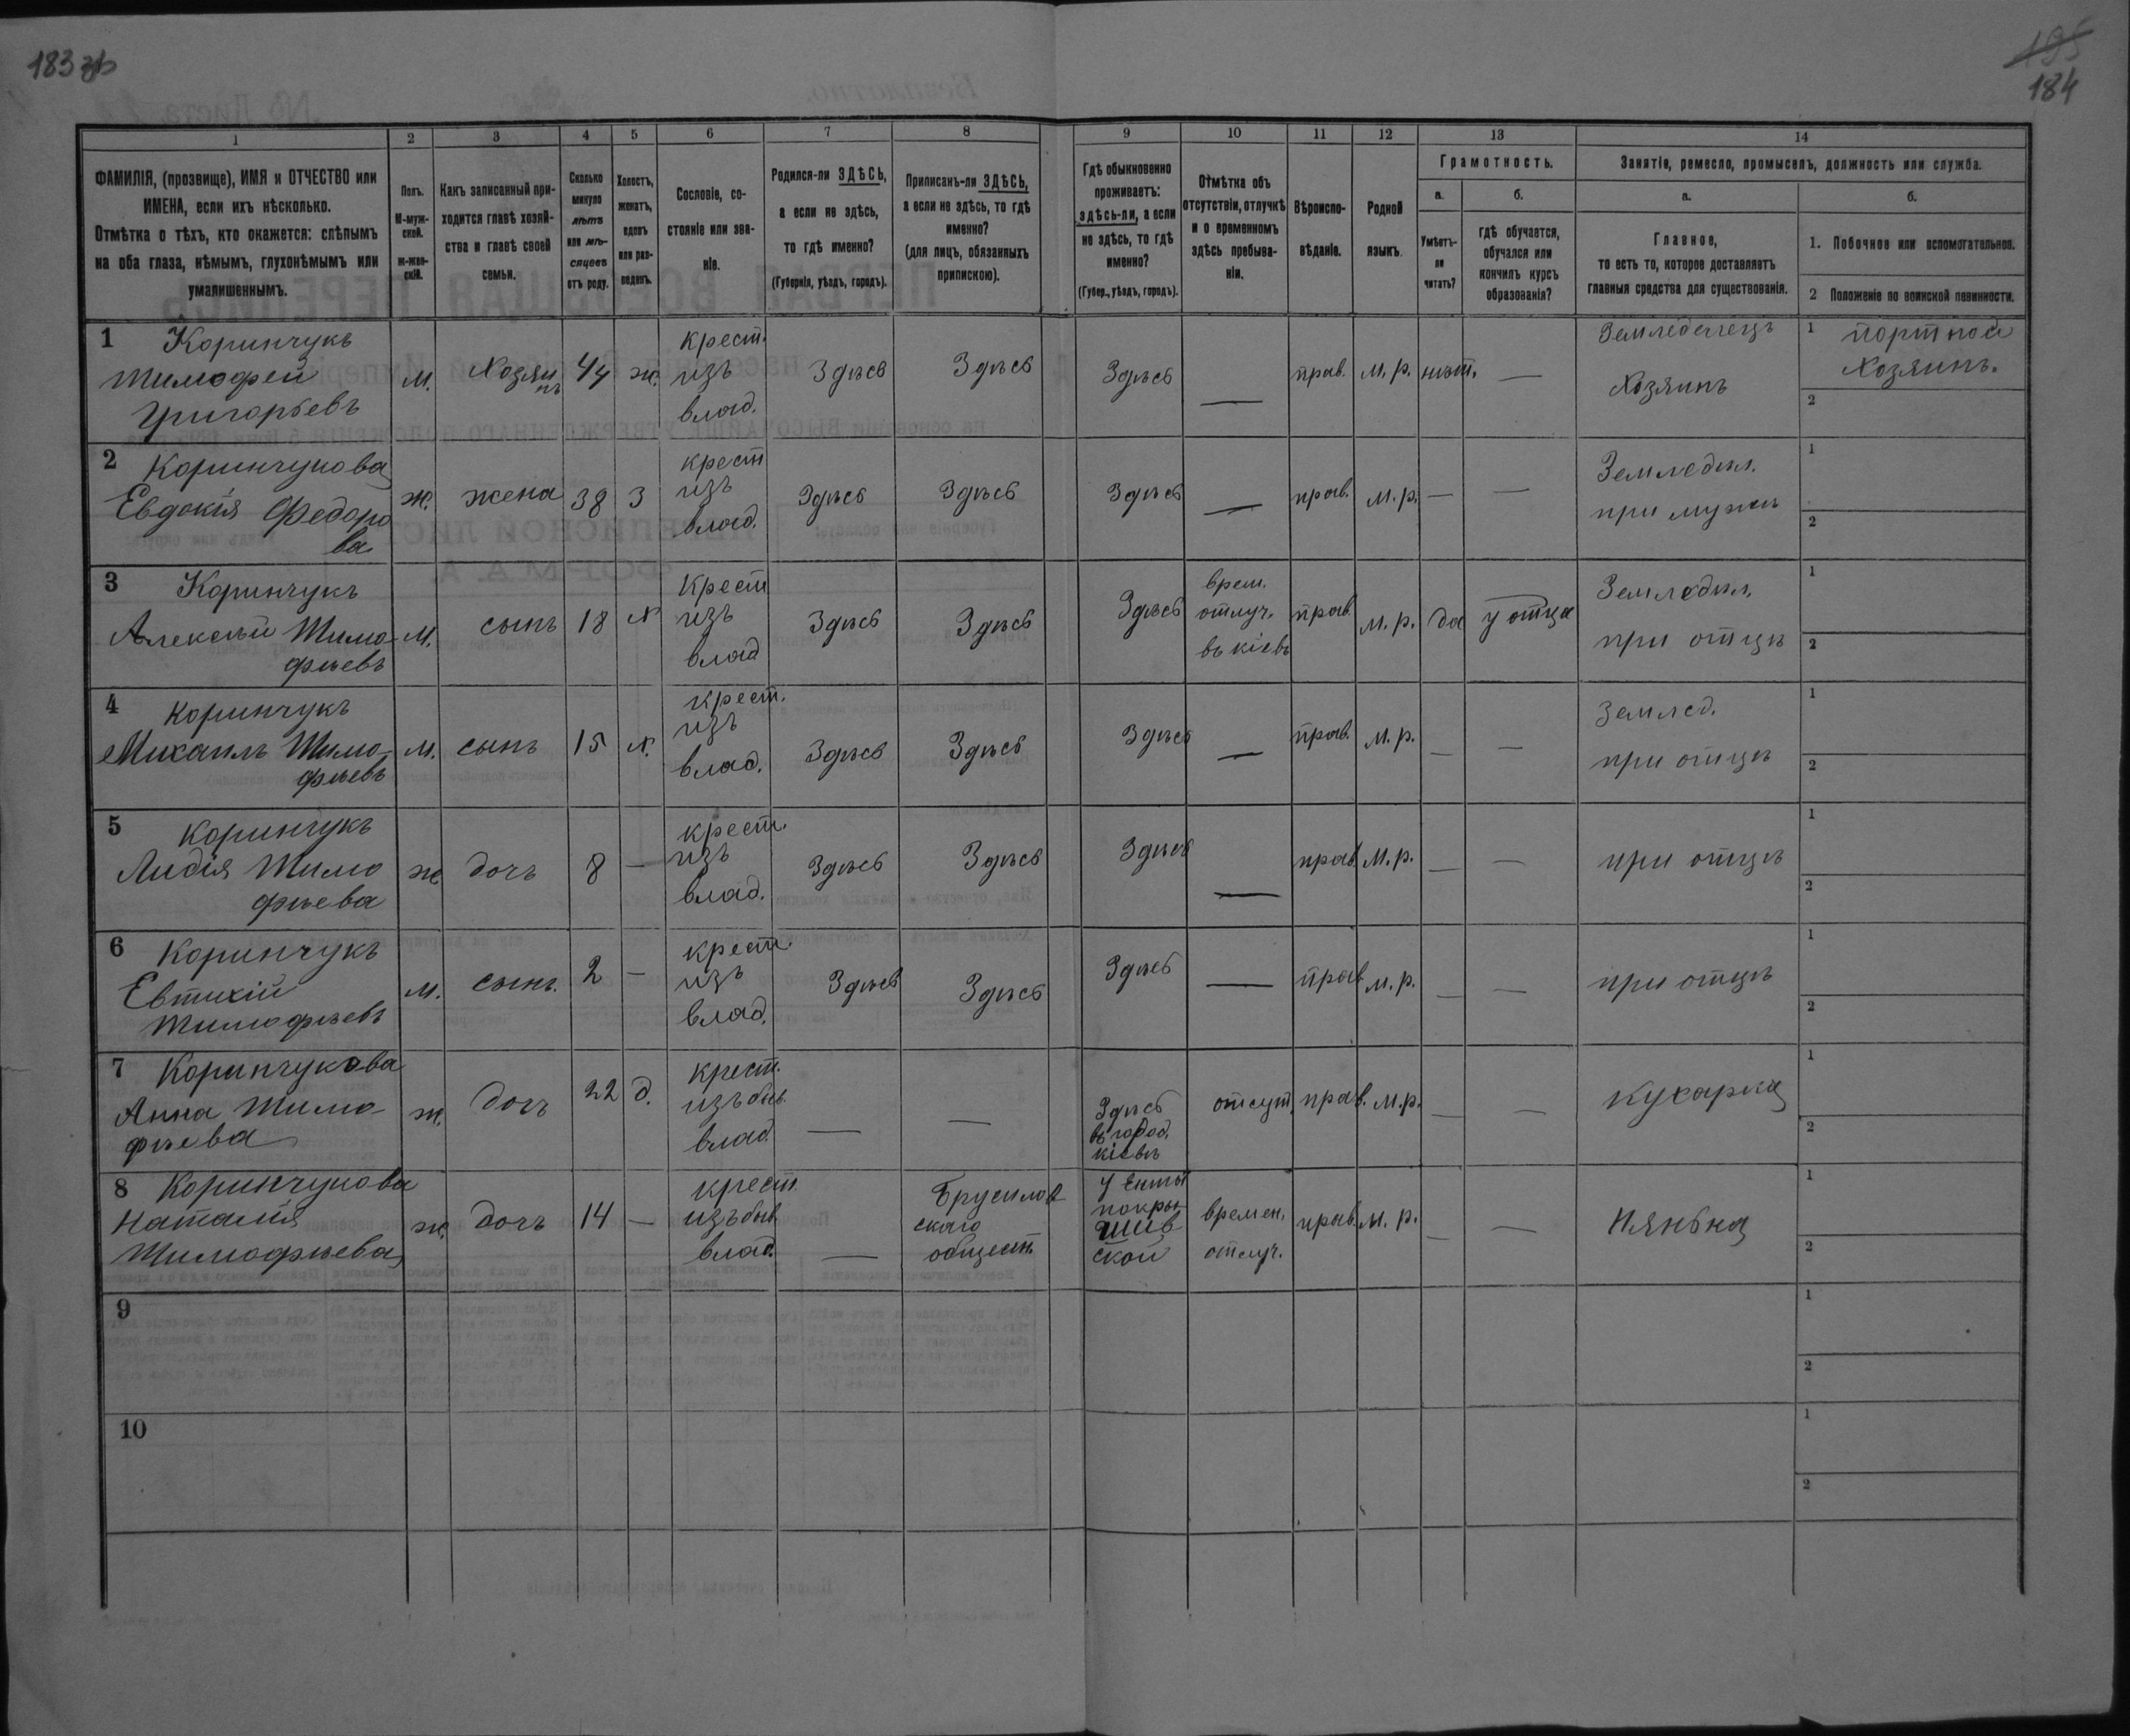 183 зв
195
184
1 2 3 4 5 6 7 8 9 10 11 12 13 14
ФАМИЛІЯ, (прозвище), ИМЯ и ОТЧЕСТВО или ИМЕНА, если ихъ нѣсколько.
Отмѣтка о тѣхъ, кто окажется: слѣпымъ на оба глаза, нѣмымъ, глухонѣмымъ или умалишеннымъ.
Полъ.
М-муж-
ской.
ж-жен-
скій.
Какъ записанный при-
ходится главѣ хозяй-
ства и главѣ своей
семьи.
Сколько
минуло
лѣтъ
или мѣ-
сяцевъ
отъ роду.
Холостъ,
женатъ,
вдовъ
или раз-
веденъ.
Сословіе, со-
стояніе или зва-
ніе.
Родился-ли ЗДѢСЬ,
а если не здѣсь,
то гдѣ именно?
(Губернія, уѣздъ, городъ).
Приписанъ-ли ЗДѢСЬ,
а если не здѣсь, то гдѣ
именно?
(для лицъ, обязанныхъ
припискою).
Гдѣ обыкновенно
проживаетъ:
здѣсь-ли, а если
не здѣсь, то гдѣ
именно?
(Губер., уѣздъ, городъ).
Отмѣтка объ
отсутствіи, отлучкѣ
и о временномъ
здѣсь пребыва-
ніи.
Вѣроиспо-
вѣданіе.
Родной
языкъ.
Грамотность.
а.
Умѣетъ-
ли
читать?
б.
гдѣ обучается,
обучался или
кончилъ курсъ
образованія?
Занятіе, ремесло, промыселъ, должность или служба.
а.
Главное,
то есть то, которое доставляетъ
главныя средства для существованія.
б.
1. Побочное или вспомогательное.
2 Положеніе по воинской повинности.
1 Коринчукъ
Тимофей
Григорьевъ
м.
Хозяи
нъ
44
ж.
крест.
изъ
влад.
Здѣсь
Здѣсь
Здѣсь
—
прав.
м. р.
нѣт.
—
Хозяинъ
1 портной
Хозяинъ.
2
2 Коринчукова
Евдокія Федоро
ва
ж.
жена
38
З
крест
изъ
влад.
Здѣсь
Здѣсь
Здѣсь
—
прав.
м. р.
—
—
Земледѣл.
при мужѣ
1
2
3 Коринчукъ
Алексѣй Тимо-
фѣевъ
м.
сынъ
18
х
Крест
изъ
влад
Здѣсь
Здѣсь
Здѣсь
врем.
отлуч.
въ кіевъ
прав.
м. р.
да
у отца
Земледѣл.
при отцѣ
1
2
4 Коринчукъ
Михаилъ Тимо-
фѣевъ
м.
сынъ
15
х.
крест.
изъ
влад.
Здѣсь
Здѣсь
Здѣсь
—
прав.
м. р.
—
—
Землед.
при отцѣ
1
2
5 Коринчукъ
Лидія Тимо
фѣева
ж
дочъ
8
—
крест.
изъ
влад.
Здѣсь
Здѣсь
Здѣсь
—
прав
м. р.
—
—
при отцѣ
1
2
6 Коринчукъ
Евтихій
Тимофѣевъ
м.
сынъ.
2
—
крест.
изъ
влад.
Здѣсь
Здѣсь
Здѣсь
—
прав
м. р.
—
—
при отцѣ
1
2
7 Коринчукова
Анна Тимо-
фѣева
ж.
дочъ
22
д.
крест.
изъ быв.
влад.
—
—
Здѣсь
въ город.
кіевѣ
отсут.
прав.
м. р.
—
—
Кухарка
1
2
8 Коринчукова
Наталія
Тимофѣева
ж.
дочъ
14
—
крест.
изъ быв.
влад.
—
Брусилов
скаго
общест.
времен.
отлуч.
прав.
м. р.
—
—
Нянька
1
2
9
1
2
10
1
2